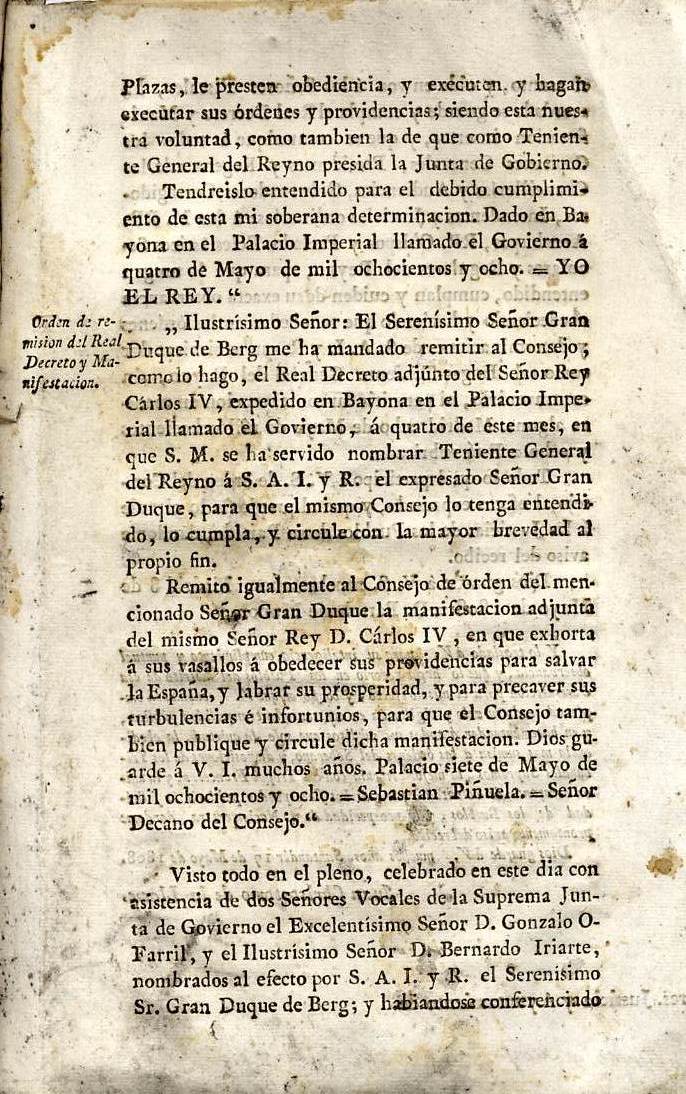 Plazas, le presten obediencia, y executen, y hagan
executar sus órdenes y providencias; siendo esta nues-
tra voluntad, como tambien la de que como Tenien-
te General del Reyno presida la Junta de Gobierno.
Tendreislo entendido para el debido cumplimi-
ento de esta mi soberana determinacion. Dado en Ba-
yona en el Palacio Imperial llamado el Govierno á
quatro de Mayo de mil ochocientos y ocho. = YO
EL REY.“
Orden de re-
mision del Real
Decreto y Ma-
nifestacion.
„ Ilustrísimo Señor: El Serenísimo Señor Gran
Duque de Berg me ha mandado remitir al Consejo;
como lo hago, el Real Decreto adjúnto del Señor Rey
Cárlos IV, expedido en Bayona en el Palacio Impe-
rial llamado el Govierno, á quatro de este mes, en
que S. M. se ha servido nombrar Teniente General
del Reyno á S. A. I. y R. el expresado Señor Gran
Duque, para que el mismo Consejo lo tenga entendi-
do, lo cumpla, y circule con la mayor brevedad al
propio fin.
Remito igualmente al Consejo de órden del men-
cionado Señor Gran Duque la manifestacion adjunta
del mismo Señor Rey D. Cárlos IV, en que exhorta
á sus vasallos á obedecer sus providencias para salvar
la España, y labrar su prosperidad, y para precaver sus
turbulencias é infortunios, para que el Consejo tam-
bien publique y circule dicha manifestacion. Dios gu-
arde á V. I. muchos años. Palacio siete de Mayo de
mil ochocientos y ocho. = Sebastian Piñuela. = Señor
Decano del Consejo.“
Visto todo en el pleno, celebrado en este dia con
asistencia de dos Señores Vocales de la Suprema Jun-
ta de Govierno el Excelentísimo Señor D. Gonzalo O-
Farril, y el Ilustrísimo Señor D. Bernardo Iriarte,
nombrados al efecto por S. A. I. y R. el Serenisimo
Sr. Gran Duque de Berg; y habiandose conferenciado